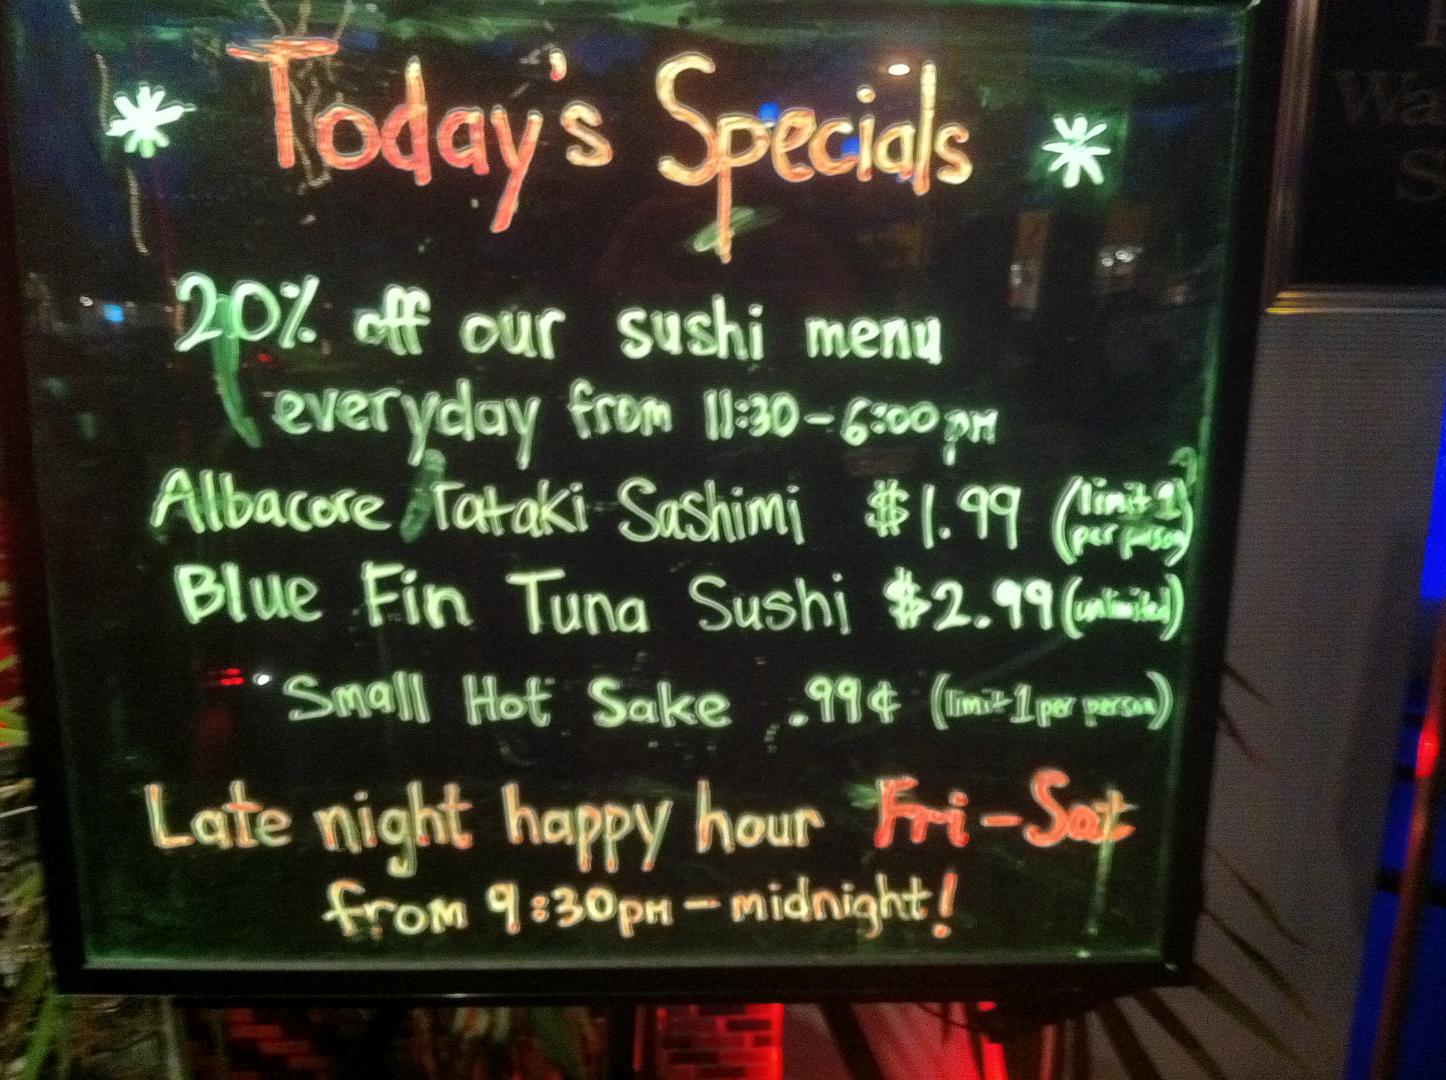 Today's Specials
20% off our sushi menu
everyday from 11:30-6:00pm
Albacore Tataki Sashimi $1.99 (limit 1 per person)
Blue Fin Tuna Sushi $2.99 (unlimited)
Small Hot Sake .99¢ (limit 1 per person)
Late night happy hour Fri-Sat
from 9:30pm-midnight!